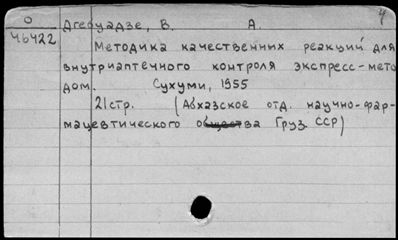 О
46422
Дгебуадзе, В. А.
Методика качественних реакций для
внутриаптечного контроля экспресс-мето
дом. Сухуми, 1955
21стр. (Абхазское отд. научно-фар-
мацевтического общества Груз. ССР)